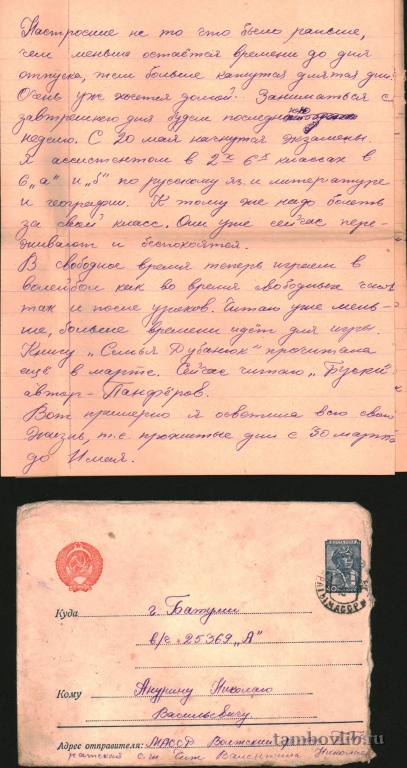 Настроение не то что было раньше,
чем меньше остаётся времени до дня
отпуска, тем больше кажутся длятся дни.
Очень уже хочется домой. Заниматься с
завтрашнего дня будем последнюю
неделю. С 20 мая начнутся экзамены.
Я ассистентом в 2х 6х классах в
6 „а" и „б" по русскому яз. и литературе
и географии. К тому же надо болеть
за свой класс. Они уже сейчас пере-
живают и беспокоятся.
В свободное время теперь играем в
волейбол как во время свободных часов
так и после уроков. Читаю уже мень-
ше, больше времени идёт для игры.
Книгу „Семья Рубанюк" прочитала
ещё в марте. Сейчас читаю „Бруски"
автор - Панфёров.
Вот примерно я осветила всю свою
жизнь, т.е. прожитые дни с 30 марта
до 11 мая.
ПОЧТА СССР
40
МАССР
Куда г. Батуми
в/ч - 25369 „А"
Кому Анурину Николаю
Васильевичу
Адрес отправителя: МАССР
с.ш. Валентина
tambovlib.ru